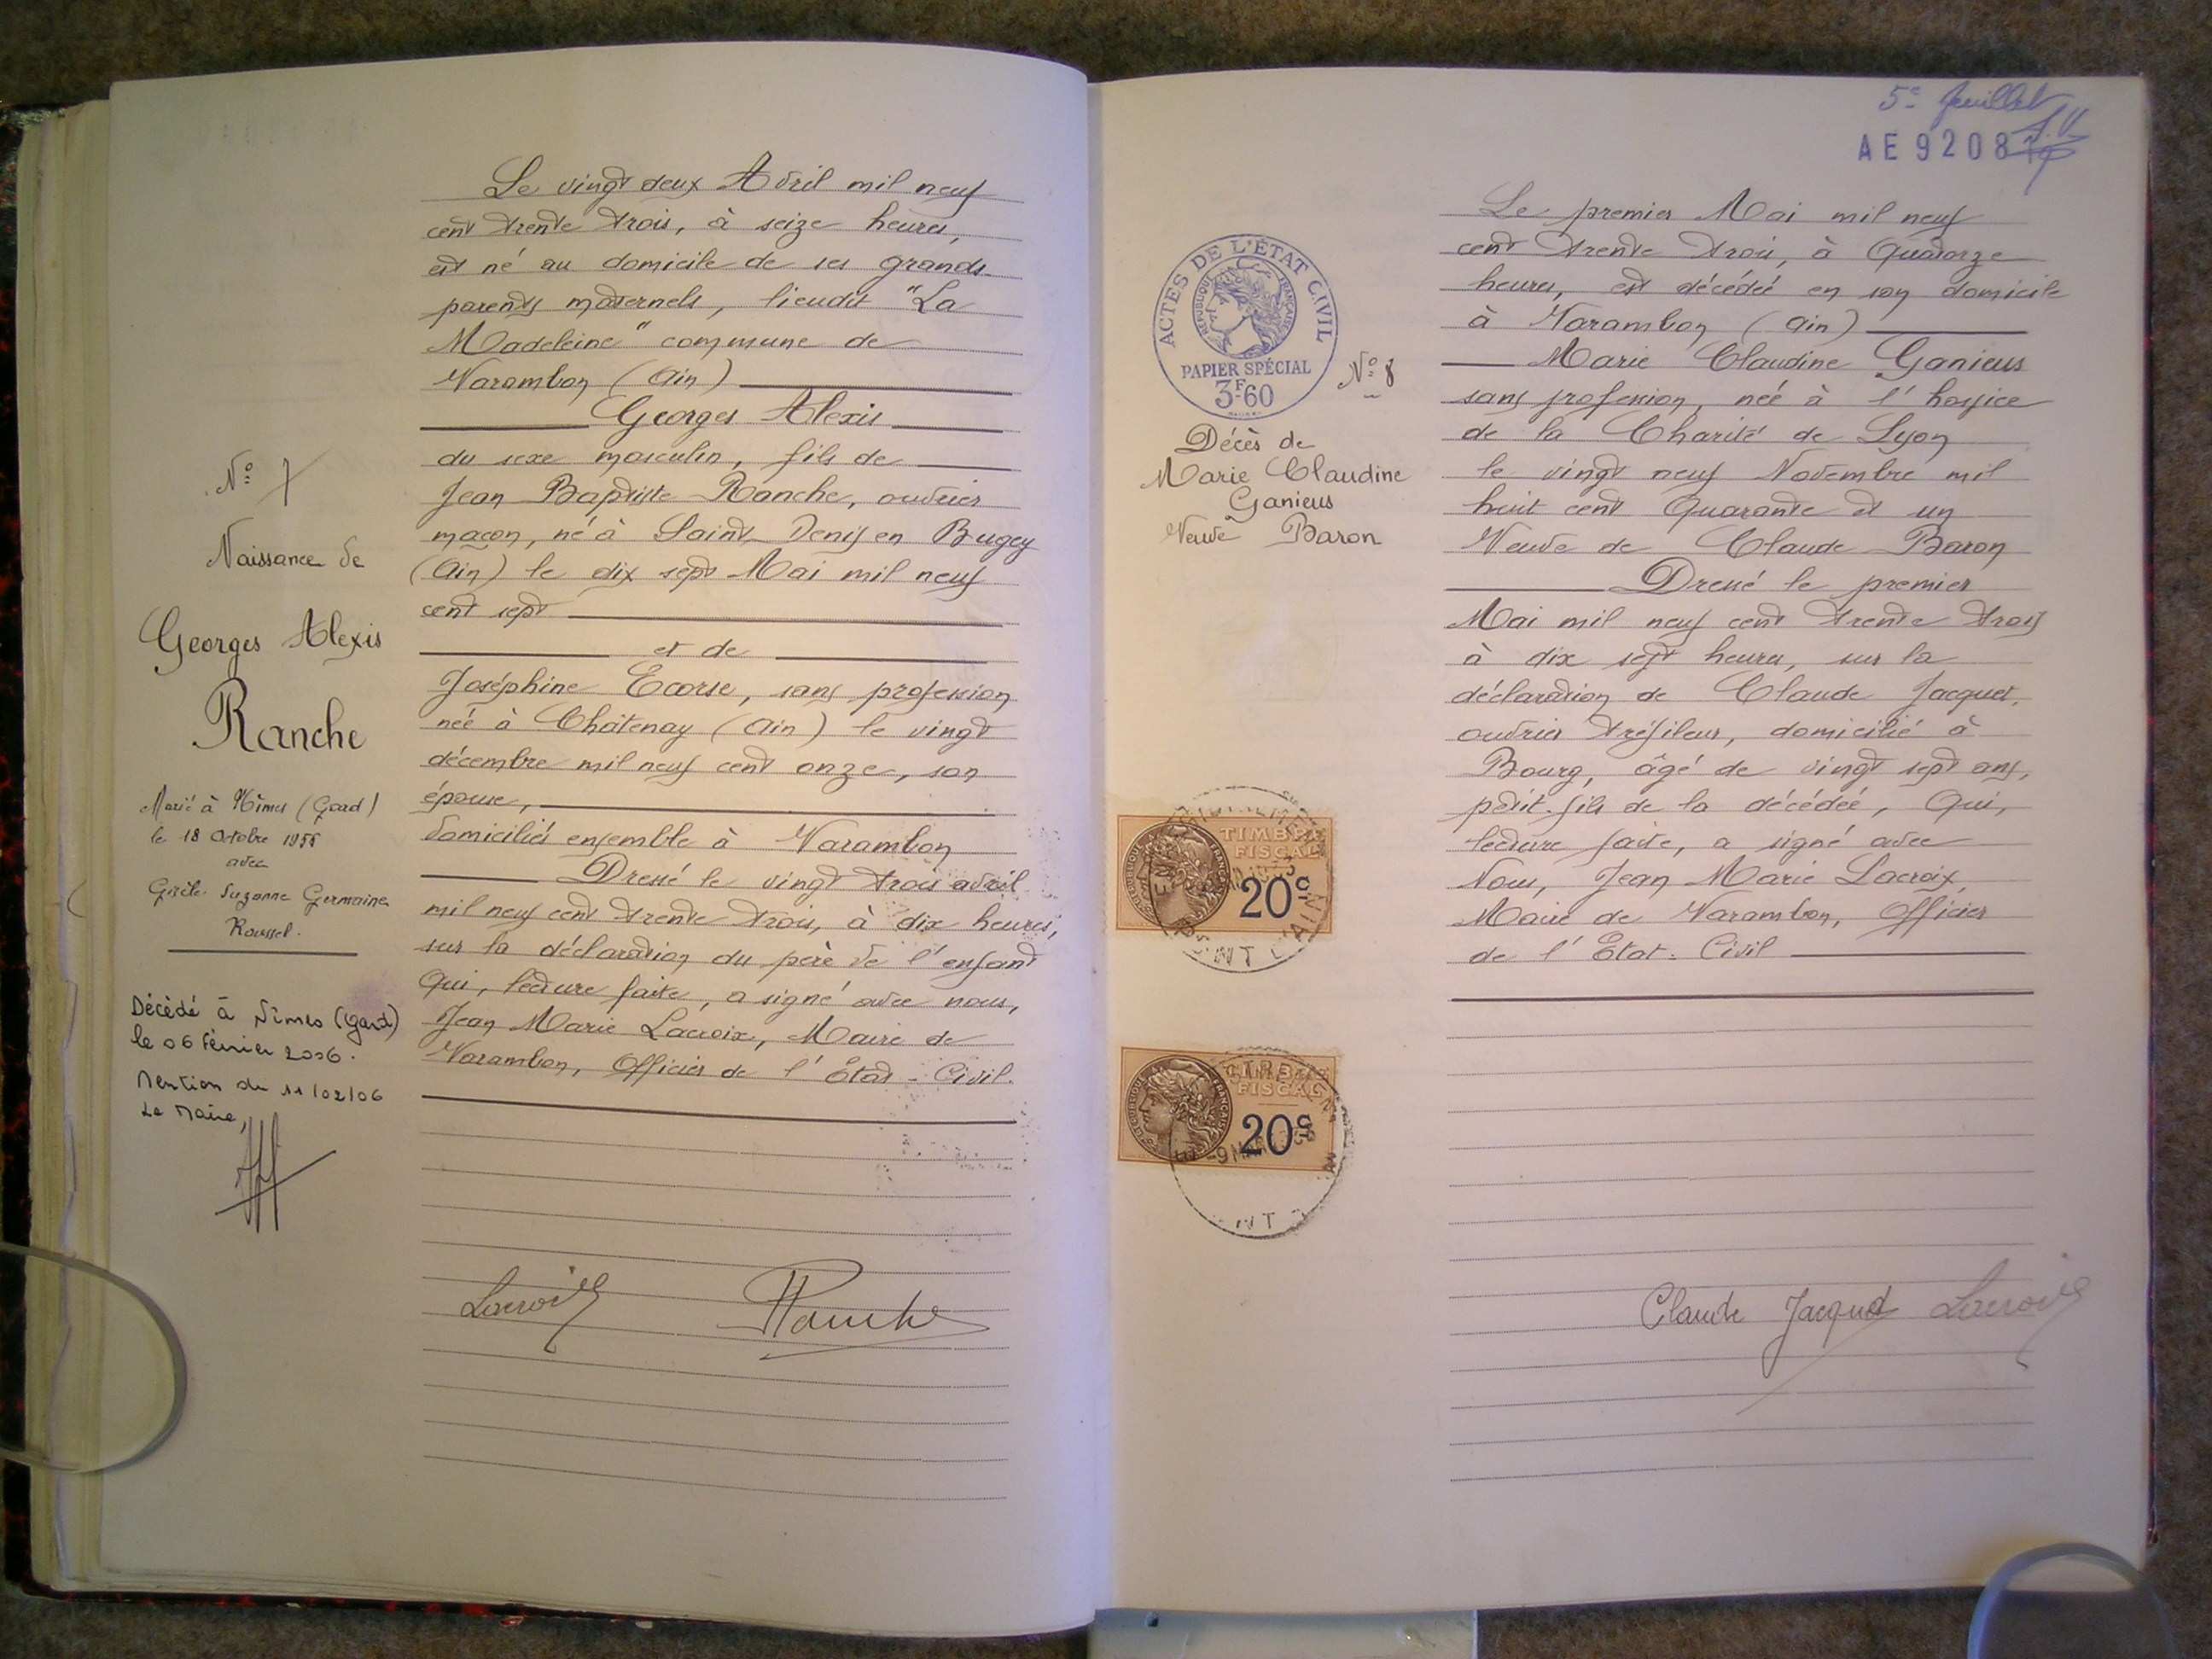 N° 7
Naissance de
Georges Alexis
Ranche
Marié à Nîmes (Gard)
le 18 Octobre 1955
avec
Gisèle Suzanne Germaine
Roussel.
Décédé à Nîmes (Gard)
le 06 Février 2006.
Mention du 11/02/06
Le Maire,
Le vingt deux Avril mil neuf
cent trente trois, à seize heures,
est né au domicile de ses grands
parents maternels, lieudit "La
Madeleine" commune de
Varambon (Ain)
Georges Alexis
du sexe masculin, fils de
Jean Baptiste Ranche, ouvrier
maçon, né à Saint Denis en Bugey
(Ain) le dix sept Mai mil neuf
cent sept
et de
Joséphine Ecorse, sans profession
née à Châtenay (Ain) le vingt
décembre mil neuf cent onze, son
épouse,
domiciliés ensemble à Varambon
Dressé le vingt trois avril
mil neuf cent trente trois, à dix heures,
sur la déclaration du père de l'enfant
qui, lecture faite, a signé avec nous,
Jean Marie Lacroix, Maire de
Varambon, Officier de l'Etat-Civil.
Lacroix Ranche
5e feuillet
AE 9208
ACTES DE L'ÉTAT CIVIL
RÉPUBLIQUE FRANÇAISE
PAPIER SPÉCIAL
3F60
N° 8
Décès de
Marie Claudine
Ganieus
Veuve Baron
TIMBRE
FISCAL
20c
TIMBRE
FISCAL
20c
Le premier Mai mil neuf
cent trente trois, à quatorze
heures, est décédée en son domicile
à Varambon (Ain)
Marie Claudine Ganieus
sans profession, née à l'hospice
de la Charité de Lyon
le vingt neuf Novembre mil
huit cent quarante et un
Veuve de Claude Baron
Dressé le premier
Mai mil neuf cent trente trois
à dix sept heures, sur la
déclaration de Claude Jacquet,
ouvrier tréfileur, domicilié à
Bourg, âgé de vingt sept ans,
petit-fils de la décédée, qui,
lecture faite, a signé avec
Nous, Jean Marie Lacroix,
Maire de Varambon, Officier
de l'Etat-Civil
Claude Jacquet Lacroix